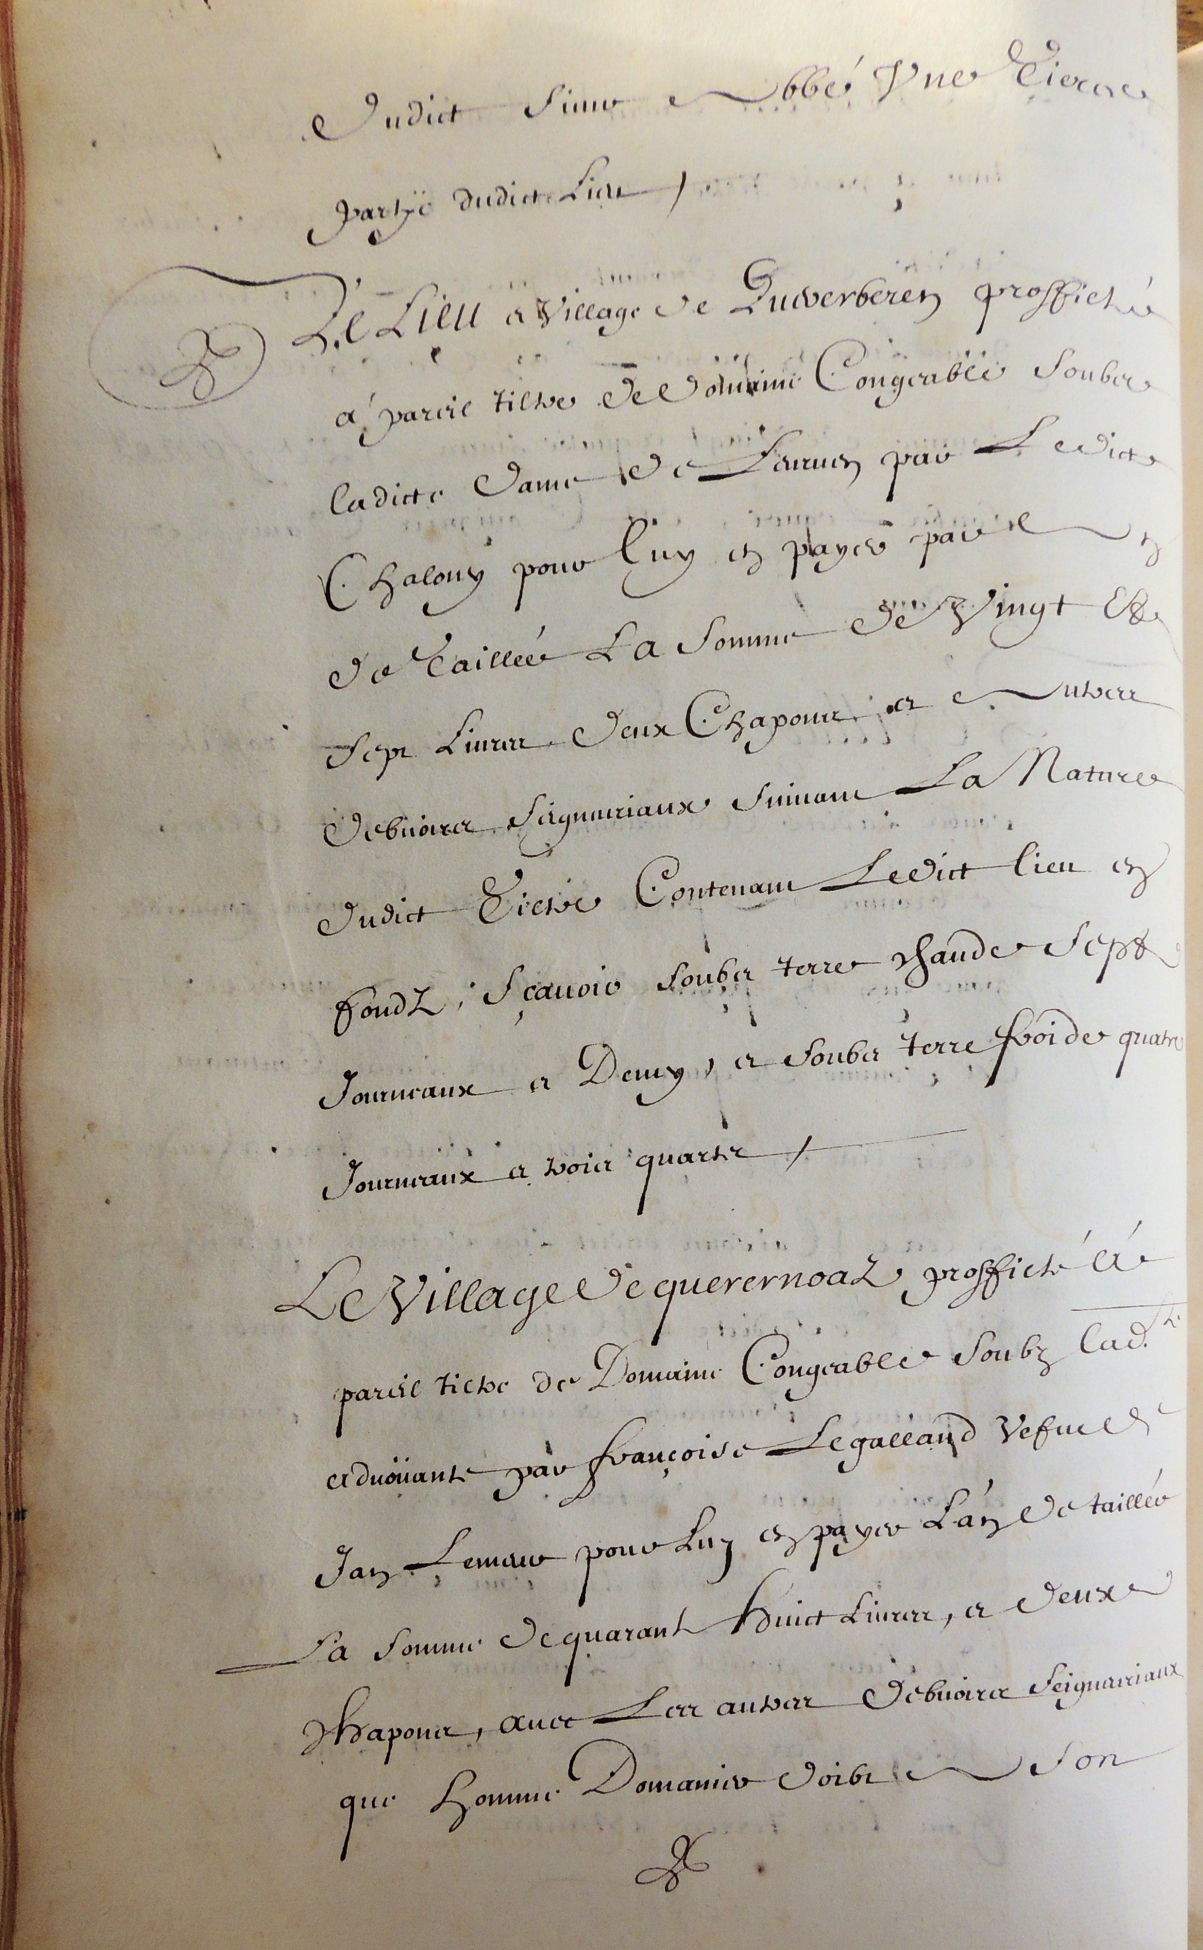 Dudict sieur Abbé Une Tierce
partye dudict Lieu /
Le Lieu et Village de Querverberen profficté
a pareil tiltre de Domaine Congeable soubz
ladicte Dame de par Ledict
Chalony pour luy en payer par an
de Taillée La somme de Vingt Et
sept Livres Deux Chapons et Autres
debvoirs seigneuriaux suivant La Nature
dudict Tiltre Contenant Ledict lieu en
fondz, sçavoir soubz terre chaude sept
Journeaux et Demy, et soubz terre froide quatre
Journeaux et trois quarts /
Le Village de querernoaz profficté à
pareil tiltre de Domaine Congeable soubz lad.te
advoüante par françoise Legalland Vefue de
Jan pour Luy en payer L'an de taillée
La somme de quarant huict Livres, et deux
Chapons, avec Les autres debvoirs seigneuriaux
que homme Domanier doibt a son